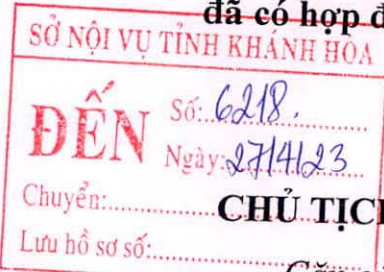 đã có hợp đ
SỞ NỘI VỤ TỈNH KHÁNH HÒA
ĐẾN
Số: 6218.
Ngày: 27/4/23
Chuyển:
CHỦ TỊCH
Lưu hồ sơ số:
Căn